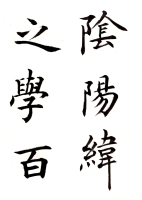 陰陽緯
之學百